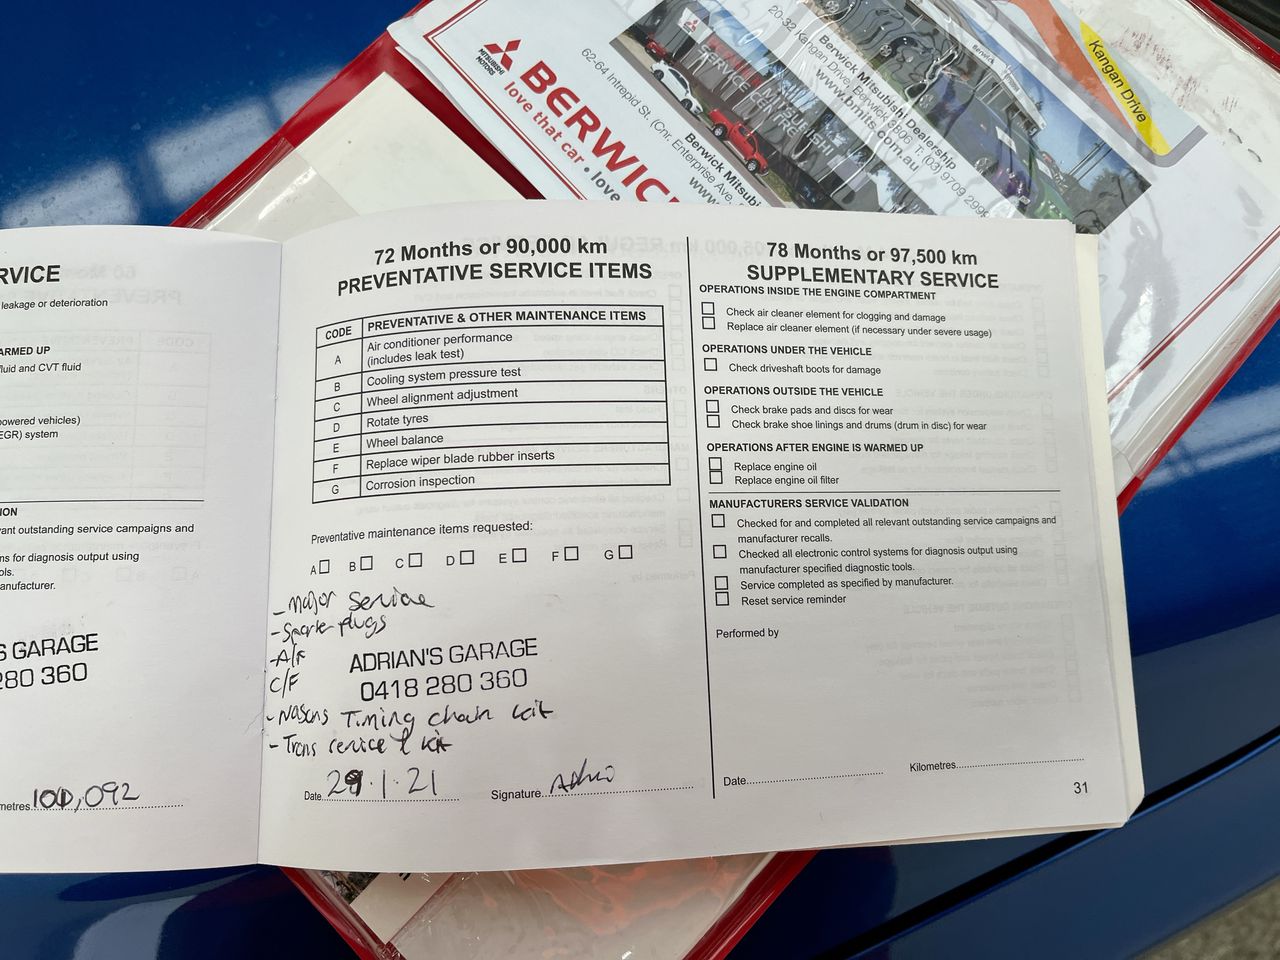 MITSUBISHI
MOTORS
BERWIC
love that car • love
62-64 Intrepid St. (Cnr. Enterprise Ave.,
Berwick Mitsubi
www.
SERVICE CENTRE
MITSUBISHI
20-32 Kangan Drive, Berwick 3806 T: (03) 9709 2999
Berwick Mitsubishi Dealership
www.bmits.com.au
Kangan Drive
RVICE
leakage or deterioration
ARMED UP
luid and CVT fluid
powered vehicles)
EGR) system
ION
vant outstanding service campaigns and
ms for diagnosis output using
ols.
anufacturer.
S GARAGE
280 360
metres 100,092
72 Months or 90,000 km
PREVENTATIVE SERVICE ITEMS
CODE PREVENTATIVE & OTHER MAINTENANCE ITEMS
A Air conditioner performance
(includes leak test)
B Cooling system pressure test
C Wheel alignment adjustment
D Rotate tyres
E Wheel balance
F Replace wiper blade rubber inserts
G Corrosion inspection
Preventative maintenance items requested:
A B C D E F G
- Major Service
- Spark plugs
- A/F
C/F
ADRIAN'S GARAGE
0418 280 360
- Nasons Timing chain kit
- Trans service kit
Date 29.1.21
Signature
78 Months or 97,500 km
SUPPLEMENTARY SERVICE
OPERATIONS INSIDE THE ENGINE COMPARTMENT
Check air cleaner element for clogging and damage
Replace air cleaner element (if necessary under severe usage)
OPERATIONS UNDER THE VEHICLE
Check driveshaft boots for damage
OPERATIONS OUTSIDE THE VEHICLE
Check brake pads and discs for wear
Check brake shoe linings and drums (drum in disc) for wear
OPERATIONS AFTER ENGINE IS WARMED UP
Replace engine oil
Replace engine oil filter
MANUFACTURERS SERVICE VALIDATION
Checked for and completed all relevant outstanding service campaigns and
manufacturer recalls.
Checked all electronic control systems for diagnosis output using
manufacturer specified diagnostic tools.
Service completed as specified by manufacturer.
Reset service reminder
Performed by
Date
Kilometres
31